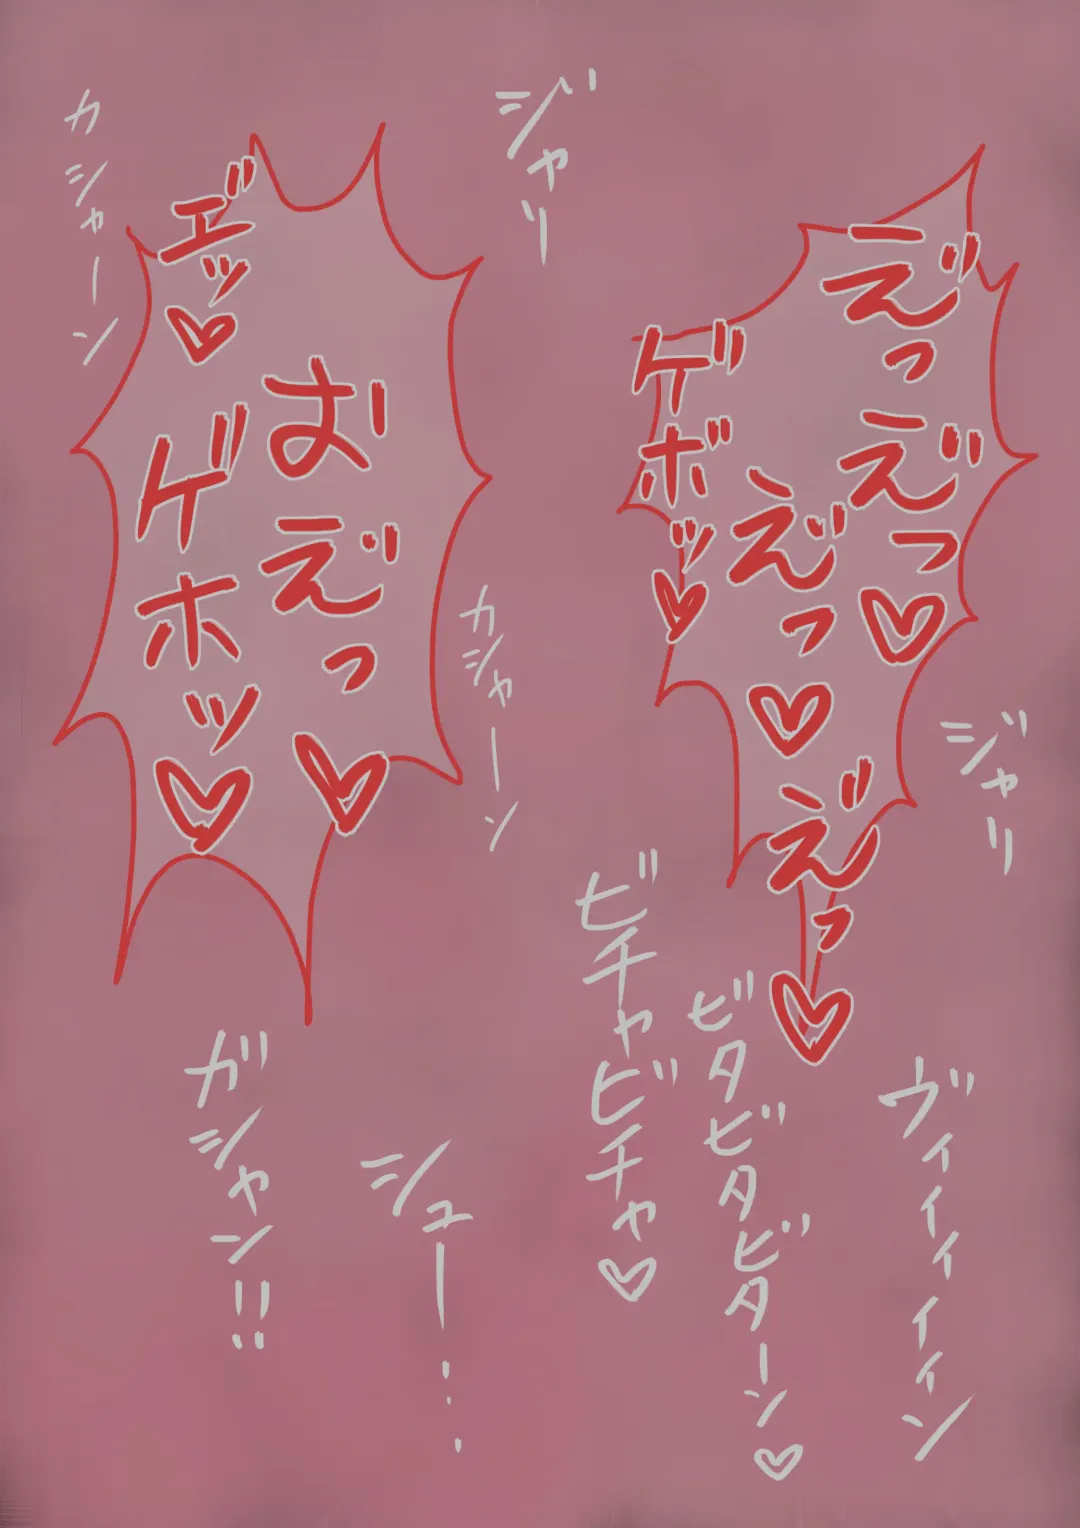 え゛っ
え゛っ♡
え゛っ♡
え゛っ♡
ゲボッ♡
ジャリ
お゛え゛っ♡
エ゛ッ♡
ゲホッ♡
カシャーン
カシャーン
ジャリ
ヴィィィィィン
ビタビタビターン♡
ビチャビチャ♡
シュー…
ガシャン!!